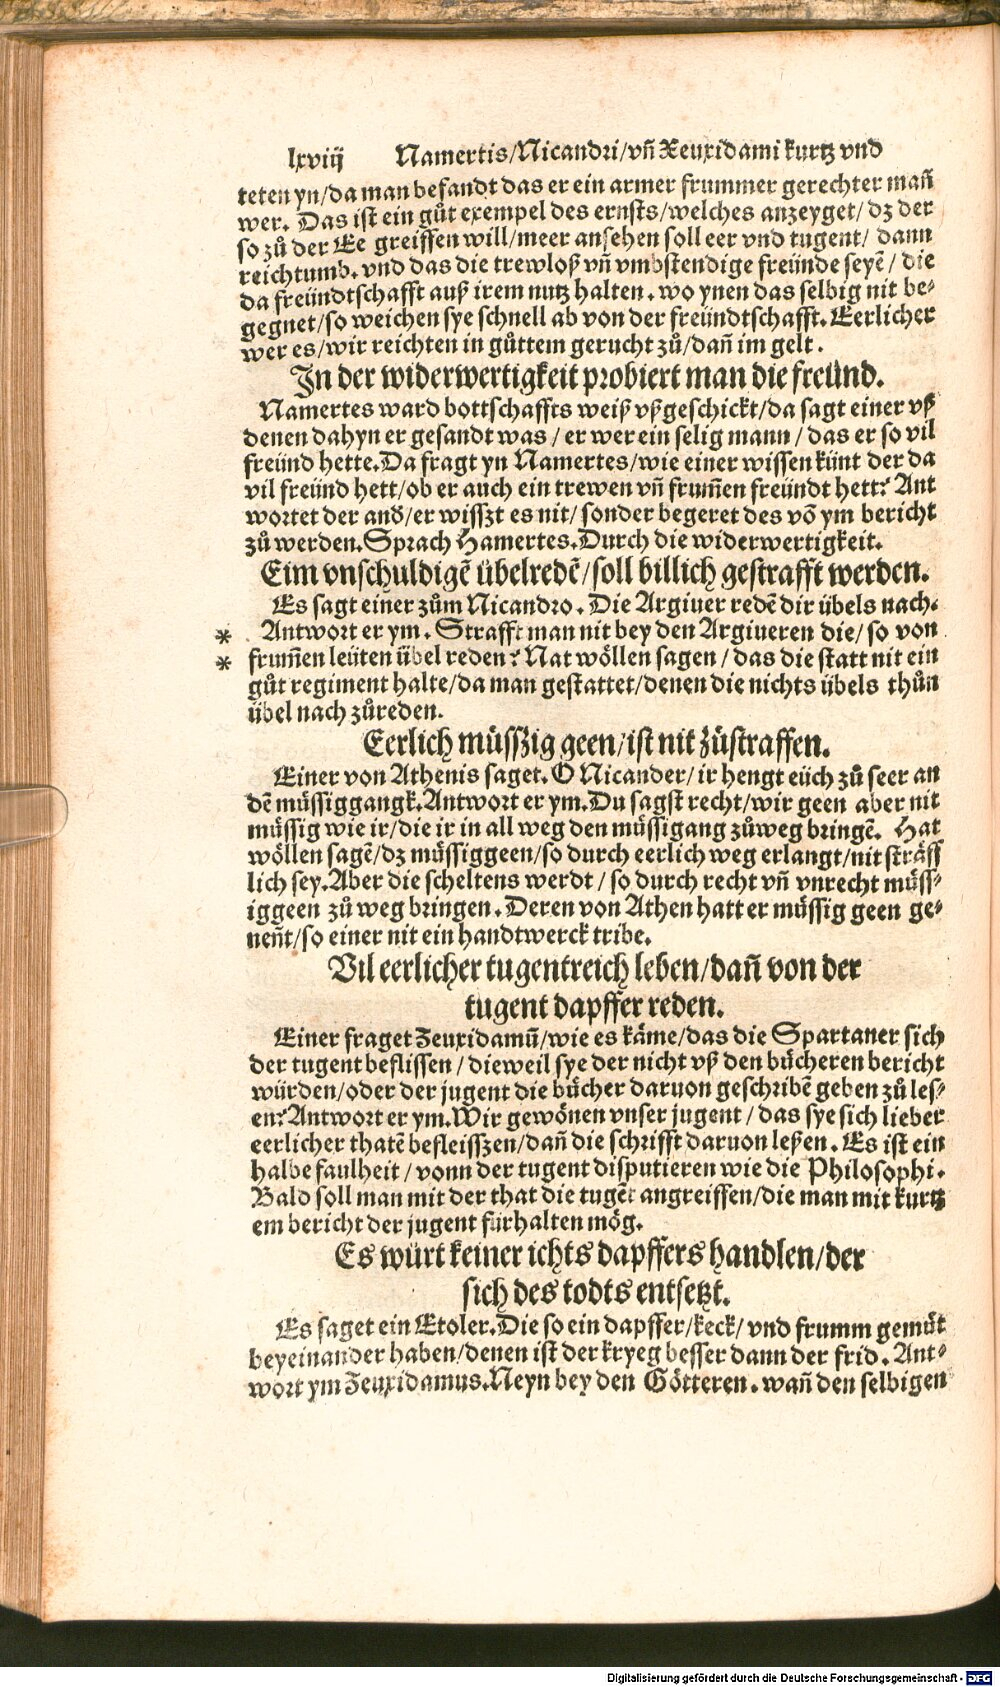 lxviij Namertis/Nicandri/vñ Xeuxidami kurtz vnd
teten yn/da man befandt das er ein armer frummer gerechter mañ
wer. Das ist ein gůt exempel des ernsts/welches anzeyget/dz der
so zů der Ee greiffen will/meer ansehen soll eer vnd tugent/ dann
reichtumb. vnd das die trewloß vñ vmbstendige freünde seyẽ/ die
da freündtschafft auß irem nutz halten. wo ynen das selbig nit be-
gegnet/so weichen sye schnell ab von der freündtschafft. Eerlicher
wer es/wir reichten in gůttem gerucht zů/dañ im gelt.
In der widerwertigkeit probiert man die freünd.
Namertes ward bottschaffts weiß vßgeschickt/da sagt einer vß
denen dahyn er gesandt was/er wer ein selig mann/das er so vil
freünd hette. Da fragt yn Namertes/wie einer wissen künt der da
vil freünd hett/ob er auch ein trewen vñ frum̃en freündt hett? Ant
wortet der and̃/er wisszt es nit/sonder begeret des võ ym bericht
zů werden. Sprach Hamertes. Durch die widerwertigkeit.
Eim vnschuldigẽ übelredẽ/soll billich gestrafft werden.
Es sagt einer zům Nicandro. Die Argiuer redẽ dir übels nach.
* Antwort er ym. Strafft man nit bey den Argiueren die/so von
* frum̃en leüten übel reden? Nat wöllen sagen/das die statt nit ein
gůt regiment halte/da man gestattet/denen die nichts übels thůn
übel nach zůreden.
Eerlich müsszig geen/ist nit zůstraffen.
Einer von Athenis saget. O Nicander/ir hengt eüch zů seer an
dẽ müssiggangk. Antwort er ym. Du sagst recht/wir geen aber nit
müssig wie ir/die ir in all weg den müssigang zůweg bringẽ. Hat
wöllen sagẽ/dz müssiggeen/so durch eerlich weg erlangt/nit sträff
lich sey. Aber die scheltens werdt/so durch recht vñ vnrecht müss-
iggeen zů weg bringen. Deren von Athen hatt er müssig geen ge-
neñt/so einer nit ein handtwerck tribe.
Vil eerlicher tugentreich leben/dañ von der
tugent dapffer reden.
Einer fraget Zeuxidamũ/wie es käme/das die Spartaner sich
der tugent beflissen/dieweil sye der nicht vß den bücheren bericht
würden/oder der jugent die bücher daruon geschribẽ geben zů les-
en? Antwort er ym. Wir gewönen vnser jugent/das sye sich lieber
eerlicher thatẽ befleisszen/dañ die schrifft daruon leßen. Es ist ein
halbe faulheit/vonn der tugent disputieren wie die Philosophi.
Bald soll man mit der that die tugẽt angreiffen/die man mit kurtz
em bericht der jugent fürhalten mög.
Es würt keiner ichts dapffers handlen/der
sich des todts entsetzt.
Es saget ein Etoler. Die so ein dapffer/keck/vnd frumm gemüt
beyeinander haben/denen ist der kryeg besser dann der frid. Ant-
wort ym Zeuxidamus. Neyn bey den Götteren. wañ den selbigen
Digitalisierung gefördert durch die Deutsche Forschungsgemeinschaft - DFG